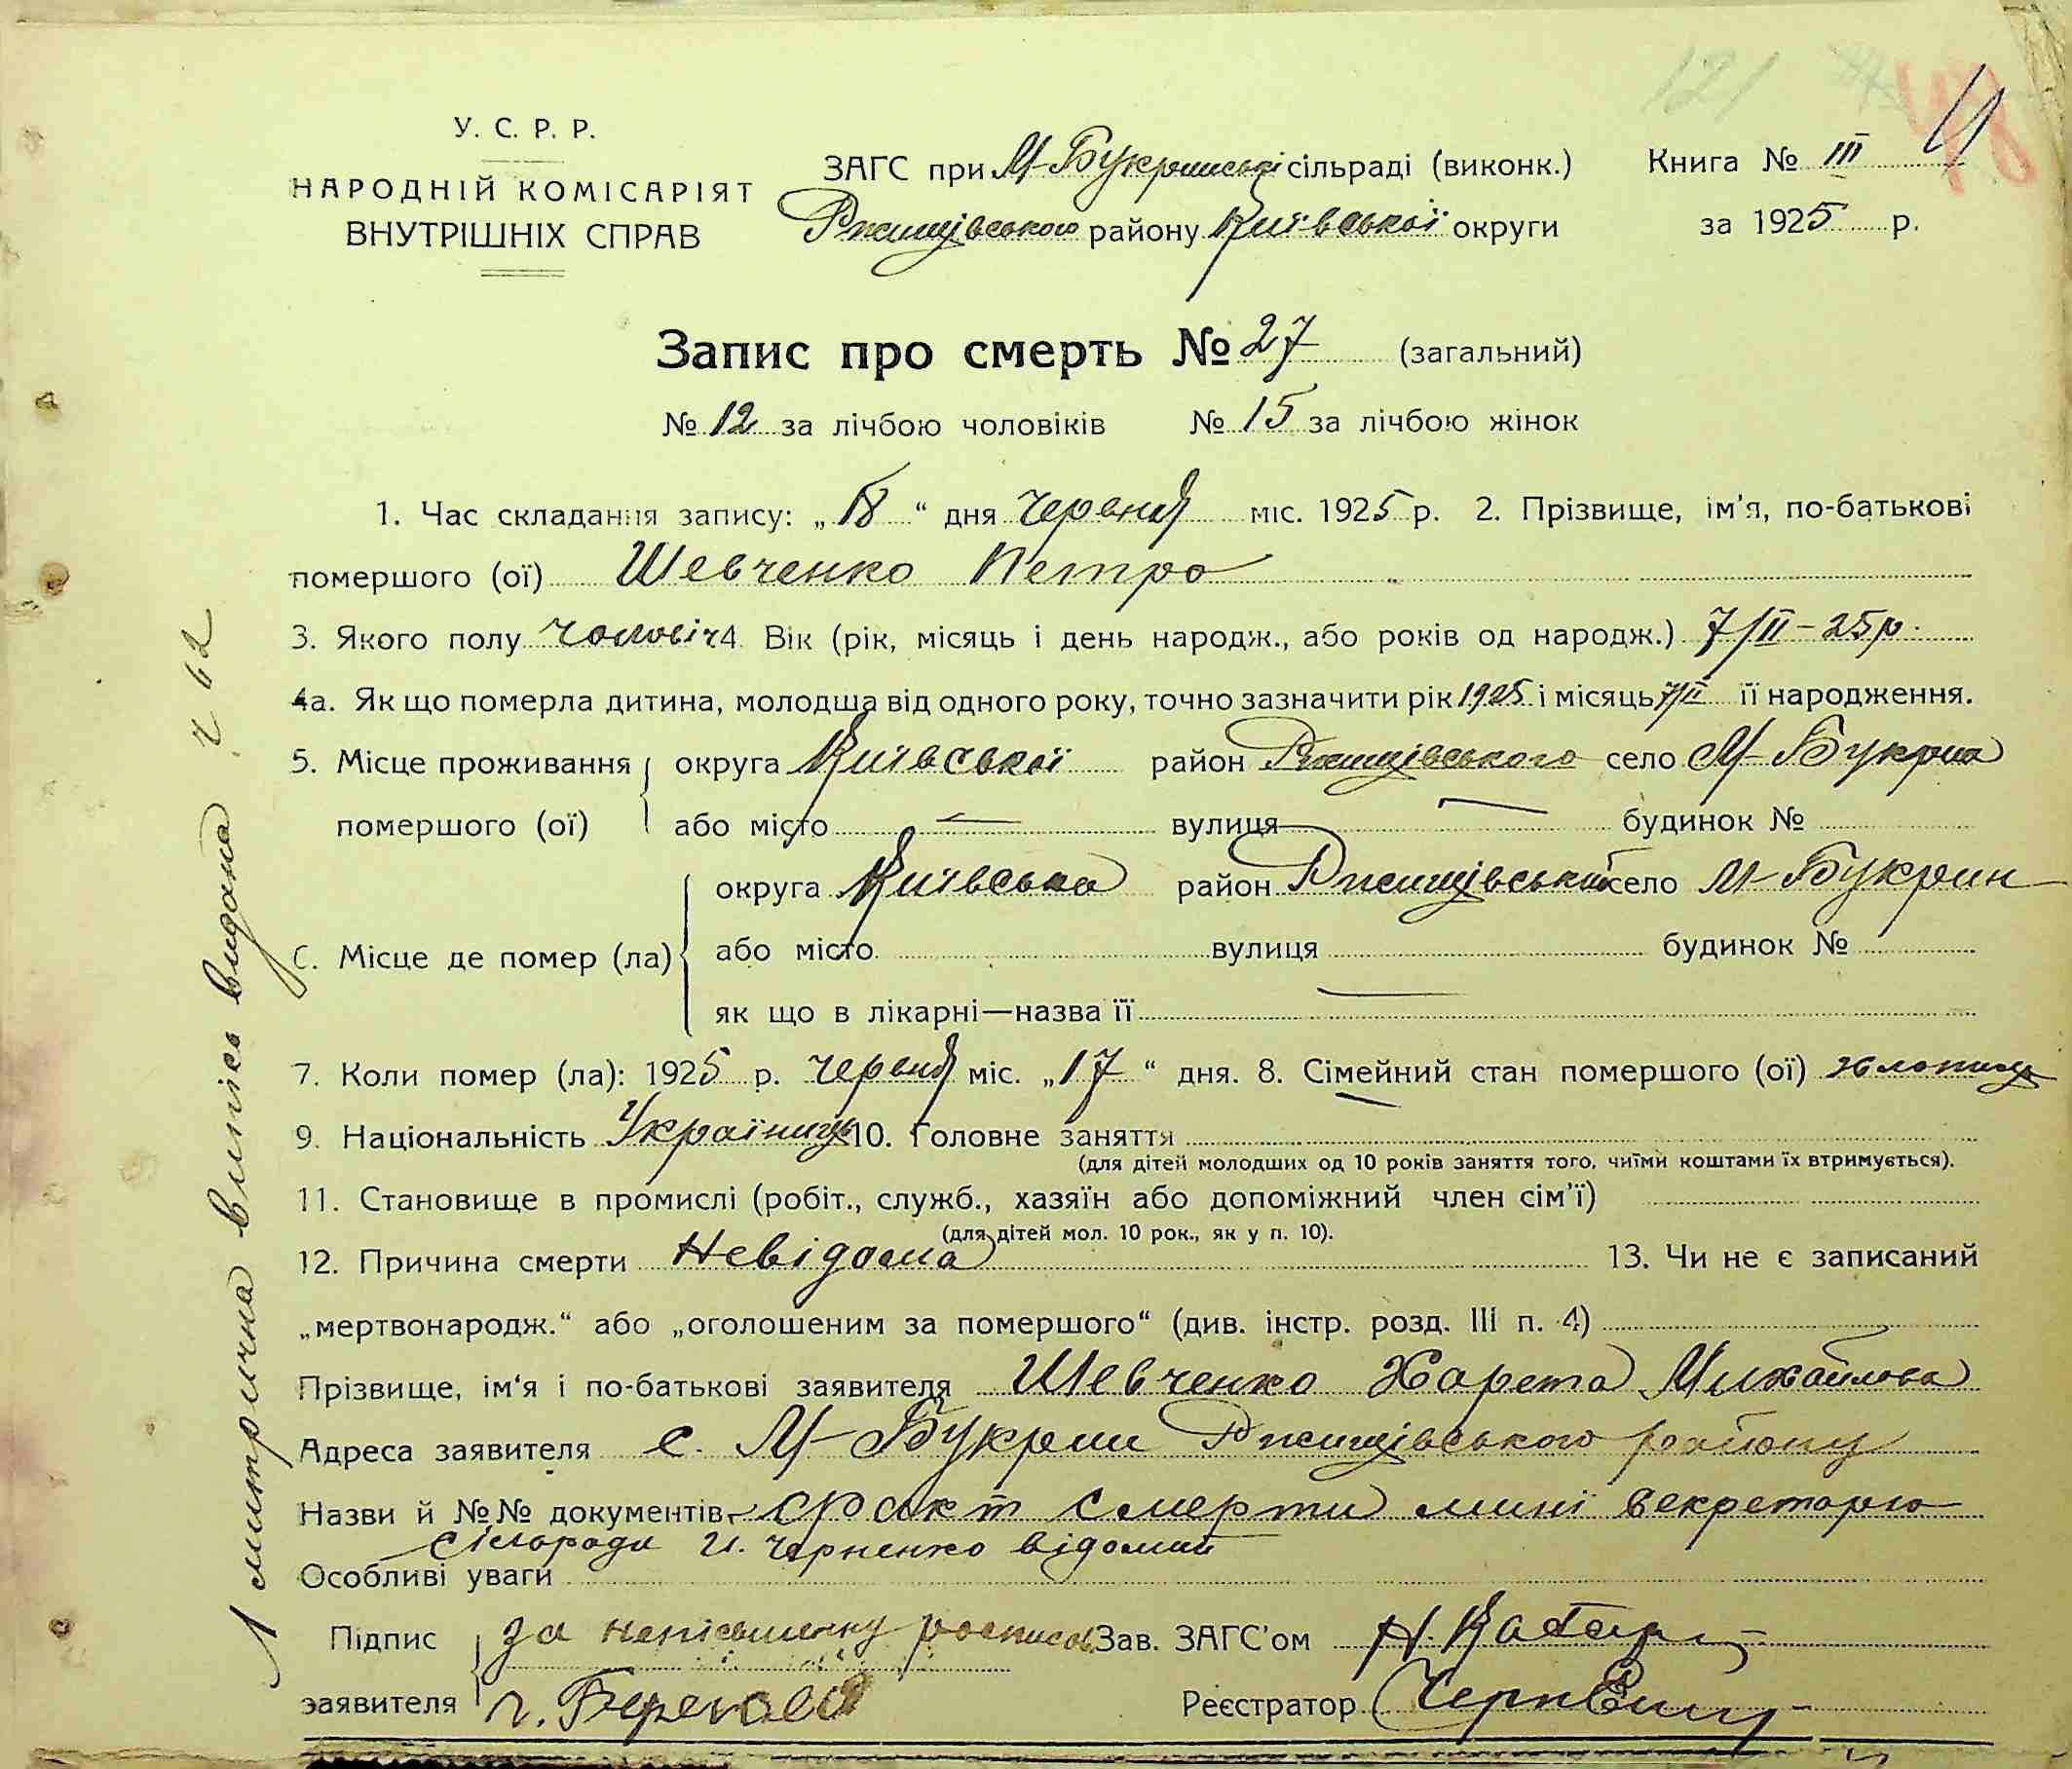 121
У. С. Р. Р.
НАРОДНІЙ КОМІСАРІЯТ
ВНУТРІШНІХ СПРАВ
ЗАГС при М-Букринській сільраді (виконк.)
Ржищівського району Київської округи
Книга № III
за 1925 р.
Запис про смерть № 27 (загальний)
№ 12 за лічбою чоловіків № 15 за лічбою жінок
1. Час складання запису: „18“ дня червня міс. 1925 р. 2. Прізвище, ім'я, по-батькові
помершого (ої) Шевченко Петро
3. Якого полу чоловіч 4. Вік (рік, місяць і день народж., або років од народж.) 7/II-25р.
4а. Як що померла дитина, молодша від одного року, точно зазначити рік 1925 і місяць 7/II її народження.
5. Місце проживання округа Київської район Ржищівського село М-Букрина
помершого (ої) або місто — вулиця — будинок №
округа Київська район Ржищівський село М-Букрин
6. Місце де помер (ла) або місто вулиця будинок №
як що в лікарні—назва її —
7. Коли помер (ла): 1925 р. червня міс. „17“ дня. 8. Сімейний стан помершого (ої) хлопець
9. Національність Українець 10. Головне заняття
(для дітей молодших од 10 років заняття того, чиїми коштами їх втримується).
11. Становище в промислі (робіт., служб., хазяїн або допоміжний член сім'ї)
(для дітей мол. 10 рок., як у п. 10).
12. Причина смерти Невідома 13. Чи не є записаний
„мертвонародж.“ або „оголошеним за помершого“ (див. інстр. розд. III п. 4)
Прізвище, ім'я і по-батькові заявителя Шевченко Михайлова
Адреса заявителя с. М-Букрин Ржищівського району
Назви й №№ документів факт смерти мині секретарю
сільради И. Черненко відомий
Особливі уваги
Підпис за неписьменну росписавсь Зав. ЗАГС'ом
заявителя Реєстратор
1 митрична випись видана ч 62